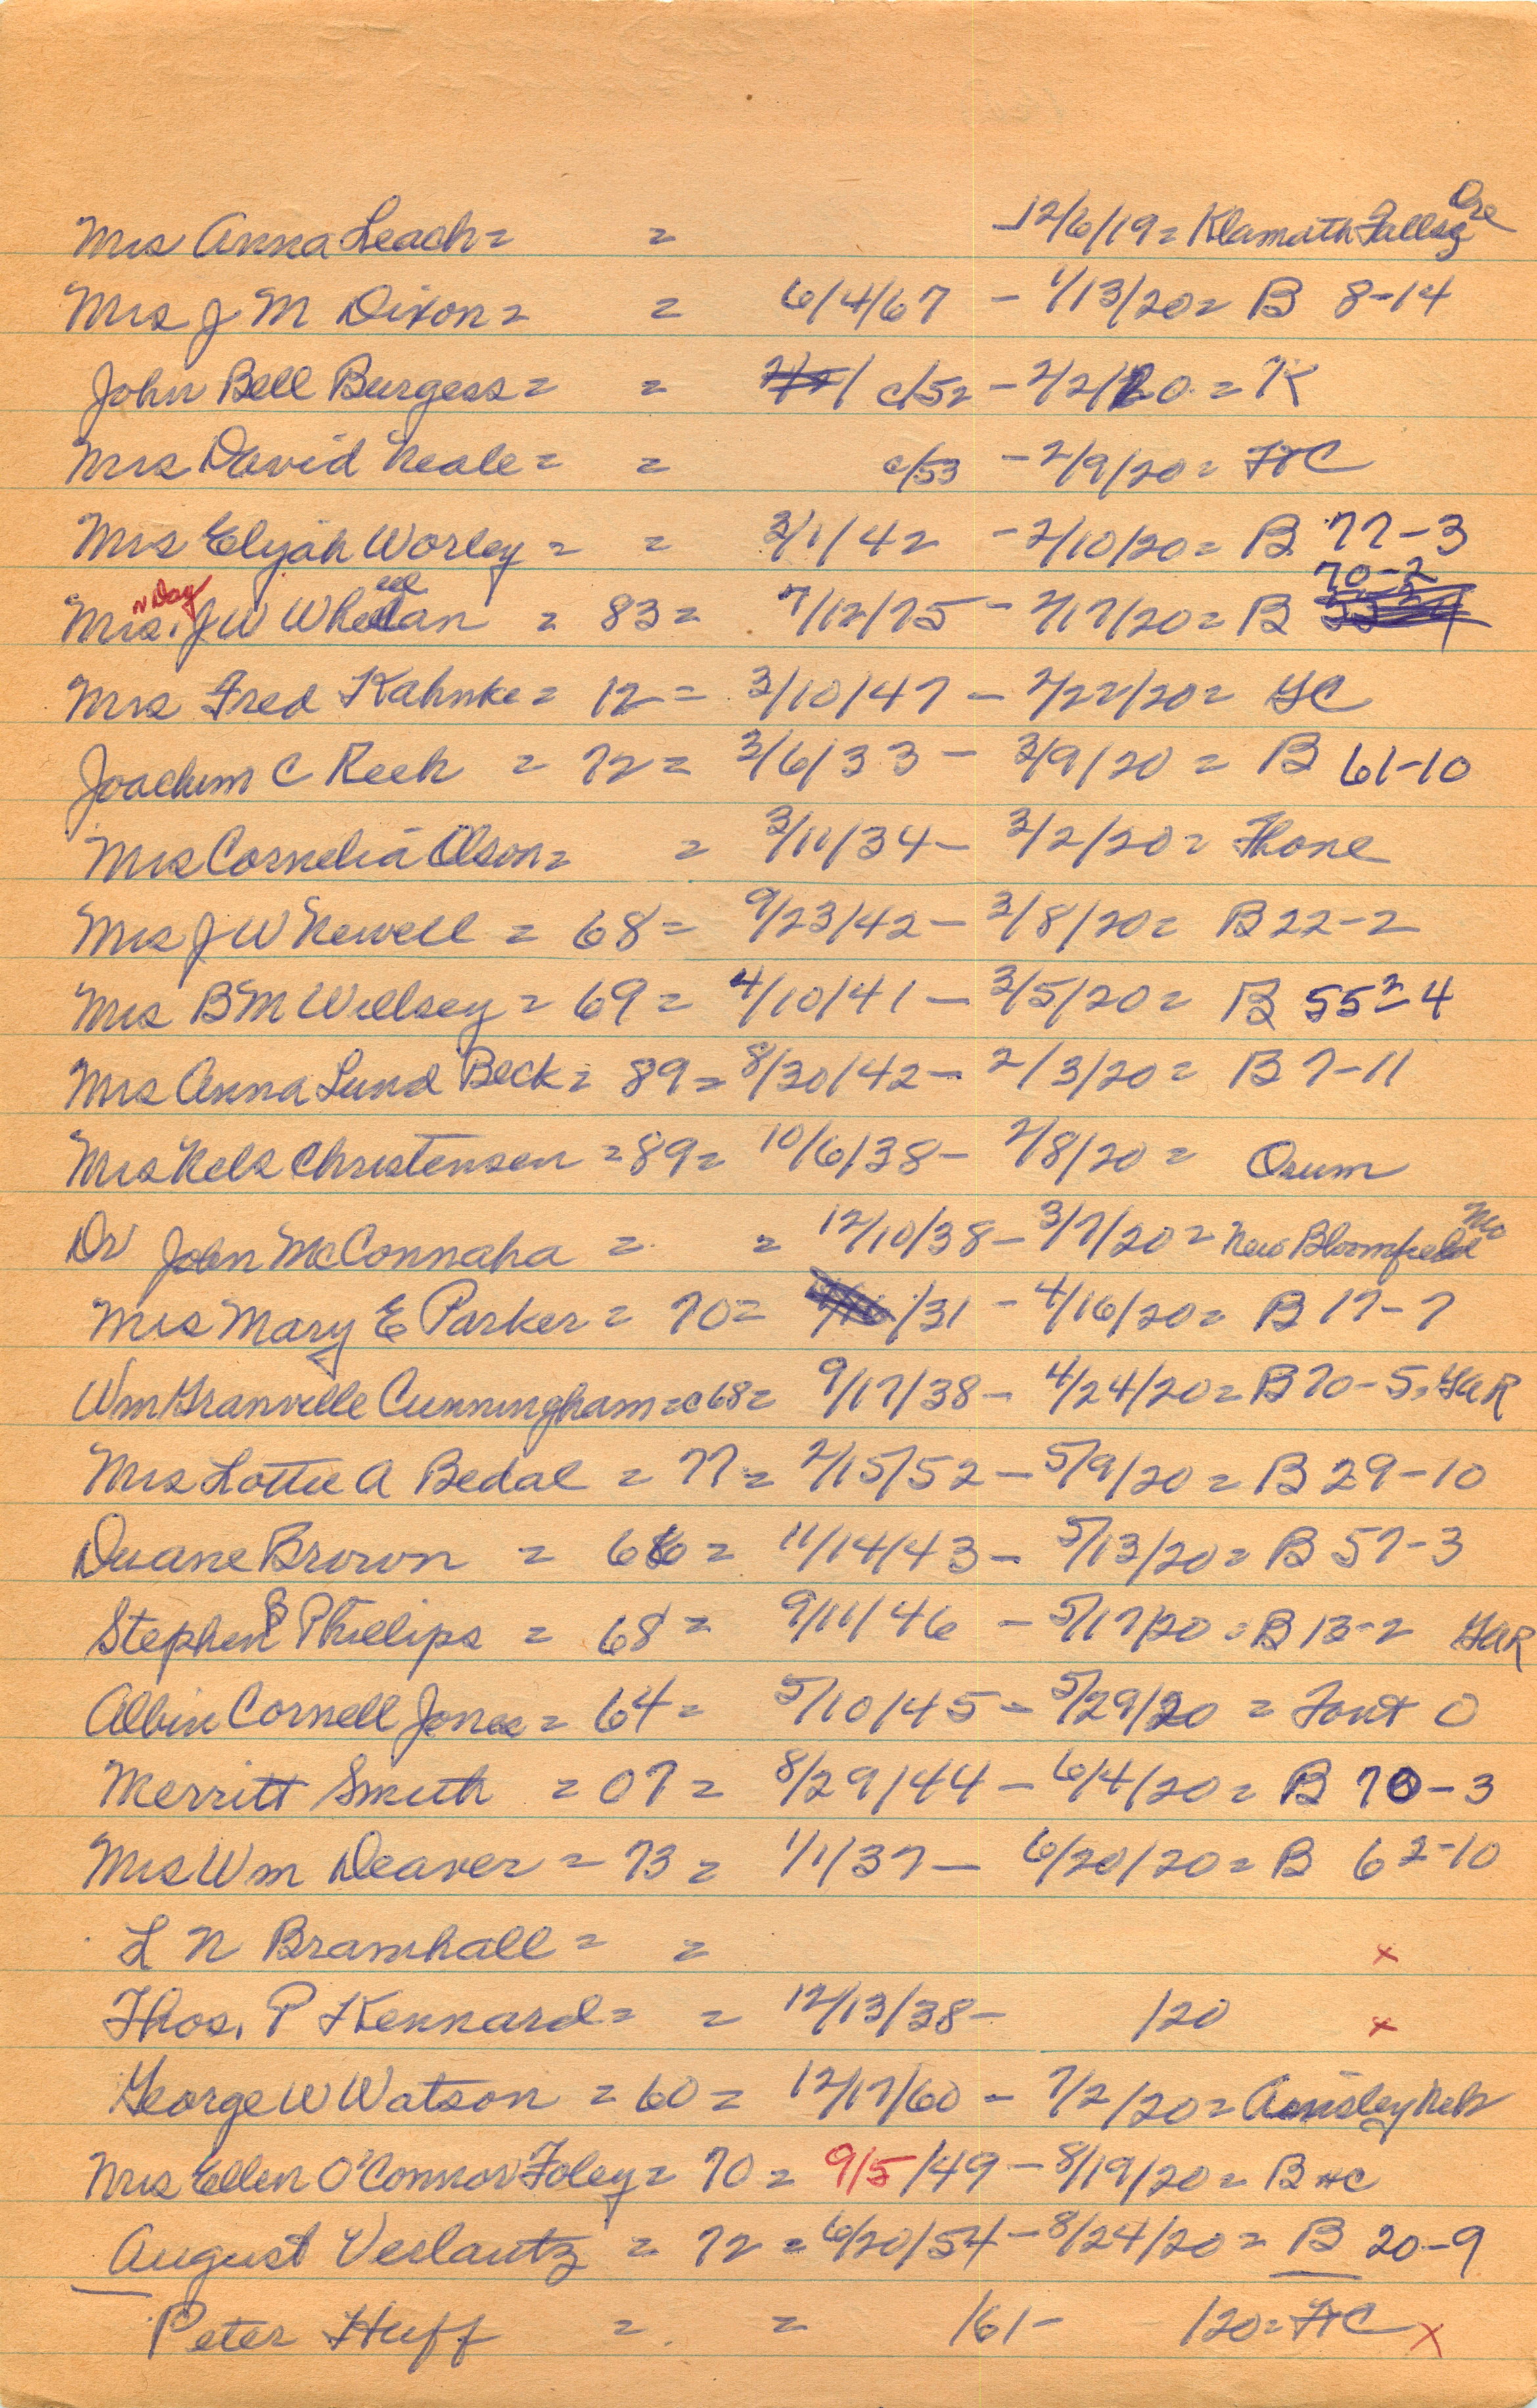 Mrs Anna Leach = = - 12/6/19 = Klamath Falls Ore
Mrs J M Dixon = = 6/4/67 - 1/13/20 = B 8-14
John Bell Burgess = = c/52 - 2/2/20 = K
Mrs David Neale = = c/53 - 2/9/20 = HC
Mrs Elijah Worley = = 3/1/42 - 2/10/20 = B 77-3
Mrs. J W Whelan = 83 = 7/12/75 - 2/17/20 = B 70-2
Mrs Fred Kahnke = 12 = 3/10/47 - 2/22/20 = GC
Joachim C Reeh = 72 = 3/6/33 - 3/9/20 = B 61-10
Mrs Cornelia Olson = = 3/11/34 - 3/2/20 = Thone
Mrs J W Newell = 68 = 9/23/42 - 3/8/20 = B 22-2
Mrs B M Willsey = 69 = 4/10/41 - 3/5/20 = B 55-4
Mrs Anna Lund Beck = 89 = 8/30/42 - 2/3/20 = B 7-11
Mrs Nels Christensen = 89 = 10/6/38 - 2/8/20 = Orum
Dr John McConnaha = = 12/10/38 - 3/7/20 = New Bloomfield Mo
Mrs Mary E Parker = 70 = /31 - 4/16/20 = B 17-7
Wm Granville Cunningham = c68 = 9/17/38 - 4/24/20 = B 70-5, GAR
Mrs Lottie A Bedal = 77 = 2/15/52 - 5/9/20 = B 29-10
Duane Brown = 66 = 11/14/43 - 5/13/20 = B 57-3
Stephen B Phillips = 68 = 9/11/46 - 5/17/20 = B 13-2 GAR
Albin Cornell Jones = 64 = 5/10/45 - 5/29/20 = Font O
Merritt Smith = 07 = 8/29/44 - 6/4/20 = B 70-3
Mrs Wm Deaver = 73 = 1/1/37 - 6/20/20 = B 62-10
L N Bramhall = = x
Thos. P Kennard = = 12/13/38 - /20 x
George W Watson = 60 = 12/17/60 - 7/2/20 = Ainsley Neb
Mrs Ellen O'Connor Foley = 70 = 9/5/49 - 8/19/20 = B HC
August Verlautz = 72 = 6/20/54 - 8/24/20 = B 20-9
Peter Huff = = /61 - /20 = HC x